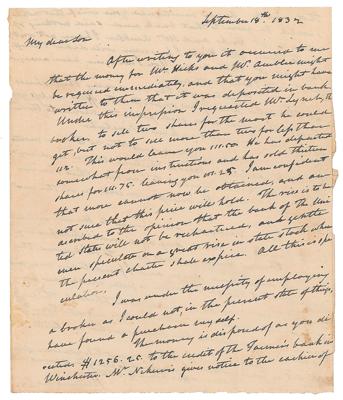 September 18th 1832
My dear Son
After writing to you it occurred to me
that the money for Mr Hicks and Mr. Ambler might
be required immediately, and that you might have
written to them that it was deposited in bank
Under this impression I requested Mr Lynch, the
broker, to sell two shares for the most he could
get, but not to sell more than two for less than
112. This would leave you 111.50. He has departed
somewhat from instructions and has sold thirteen
shares for 111.75. leaving you 111.25. I am confident
that more cannot now be obtained, and am
not sure that this price will hold. The rise is to be
ascribed to the opinion that the bank of the Uni
ted State will not be rechartered, and gentle
men speculate on a great rise in state stock when
the present charter shall expire. All this is spe
culation.
I was under the necessity of employing
a broker as I could not, in the present state of things,
have found a purchaser myself.
The money is disposed of as you di
rected. $1256.25. to the credit of the Farmers bank in
Winchester. Mr Nekervis gives notice to the cashier of